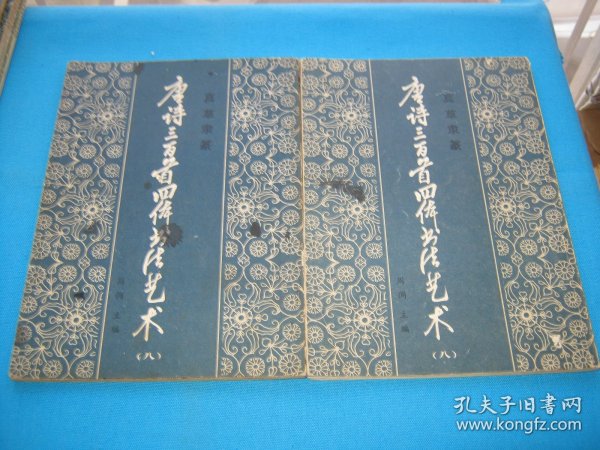 真草隶篆
唐诗三百首四体书法艺术
周倜 主编
（八）
真草隶篆
唐诗三百首四体书法艺术
周倜 主编
（八）
孔夫子旧书网
www.kongfz.com